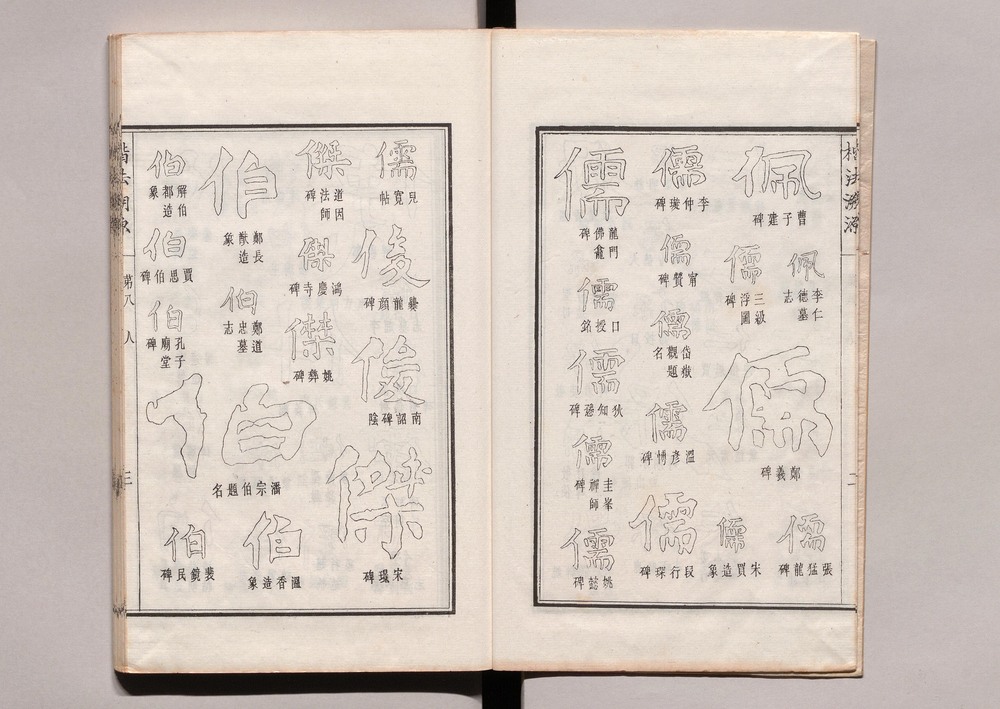 楷法溯源
二
佩
曹子建碑
佩
李仁德墓志
儒
鄭義碑
儒
張猛龍碑
儒
三級浮圖碑
儒
宋買造象
儒
李仲璇碑
儒
甯贊碑
儒
岱嶽觀題名
儒
溫彥博碑
儒
段行琛碑
儒
龍門佛龕碑
儒
口授銘
儒
狄知愻碑
儒
圭峯禪師碑
儒
姚懿碑
儒
兒寬帖
俊
龍顏碑
俊
南詔碑陰
傑
宋璟碑
傑
道因法師碑
傑
鴻慶寺碑
傑
姚彝碑
伯
鄭長猷造象
伯
鄭道忠墓志
伯
潘宗伯題名
伯
溫香造象
伯
解伯都造象
伯
賈思伯碑
伯
孔子廟堂碑
伯
裴鏡民碑
楷法溯源
第八
人
三